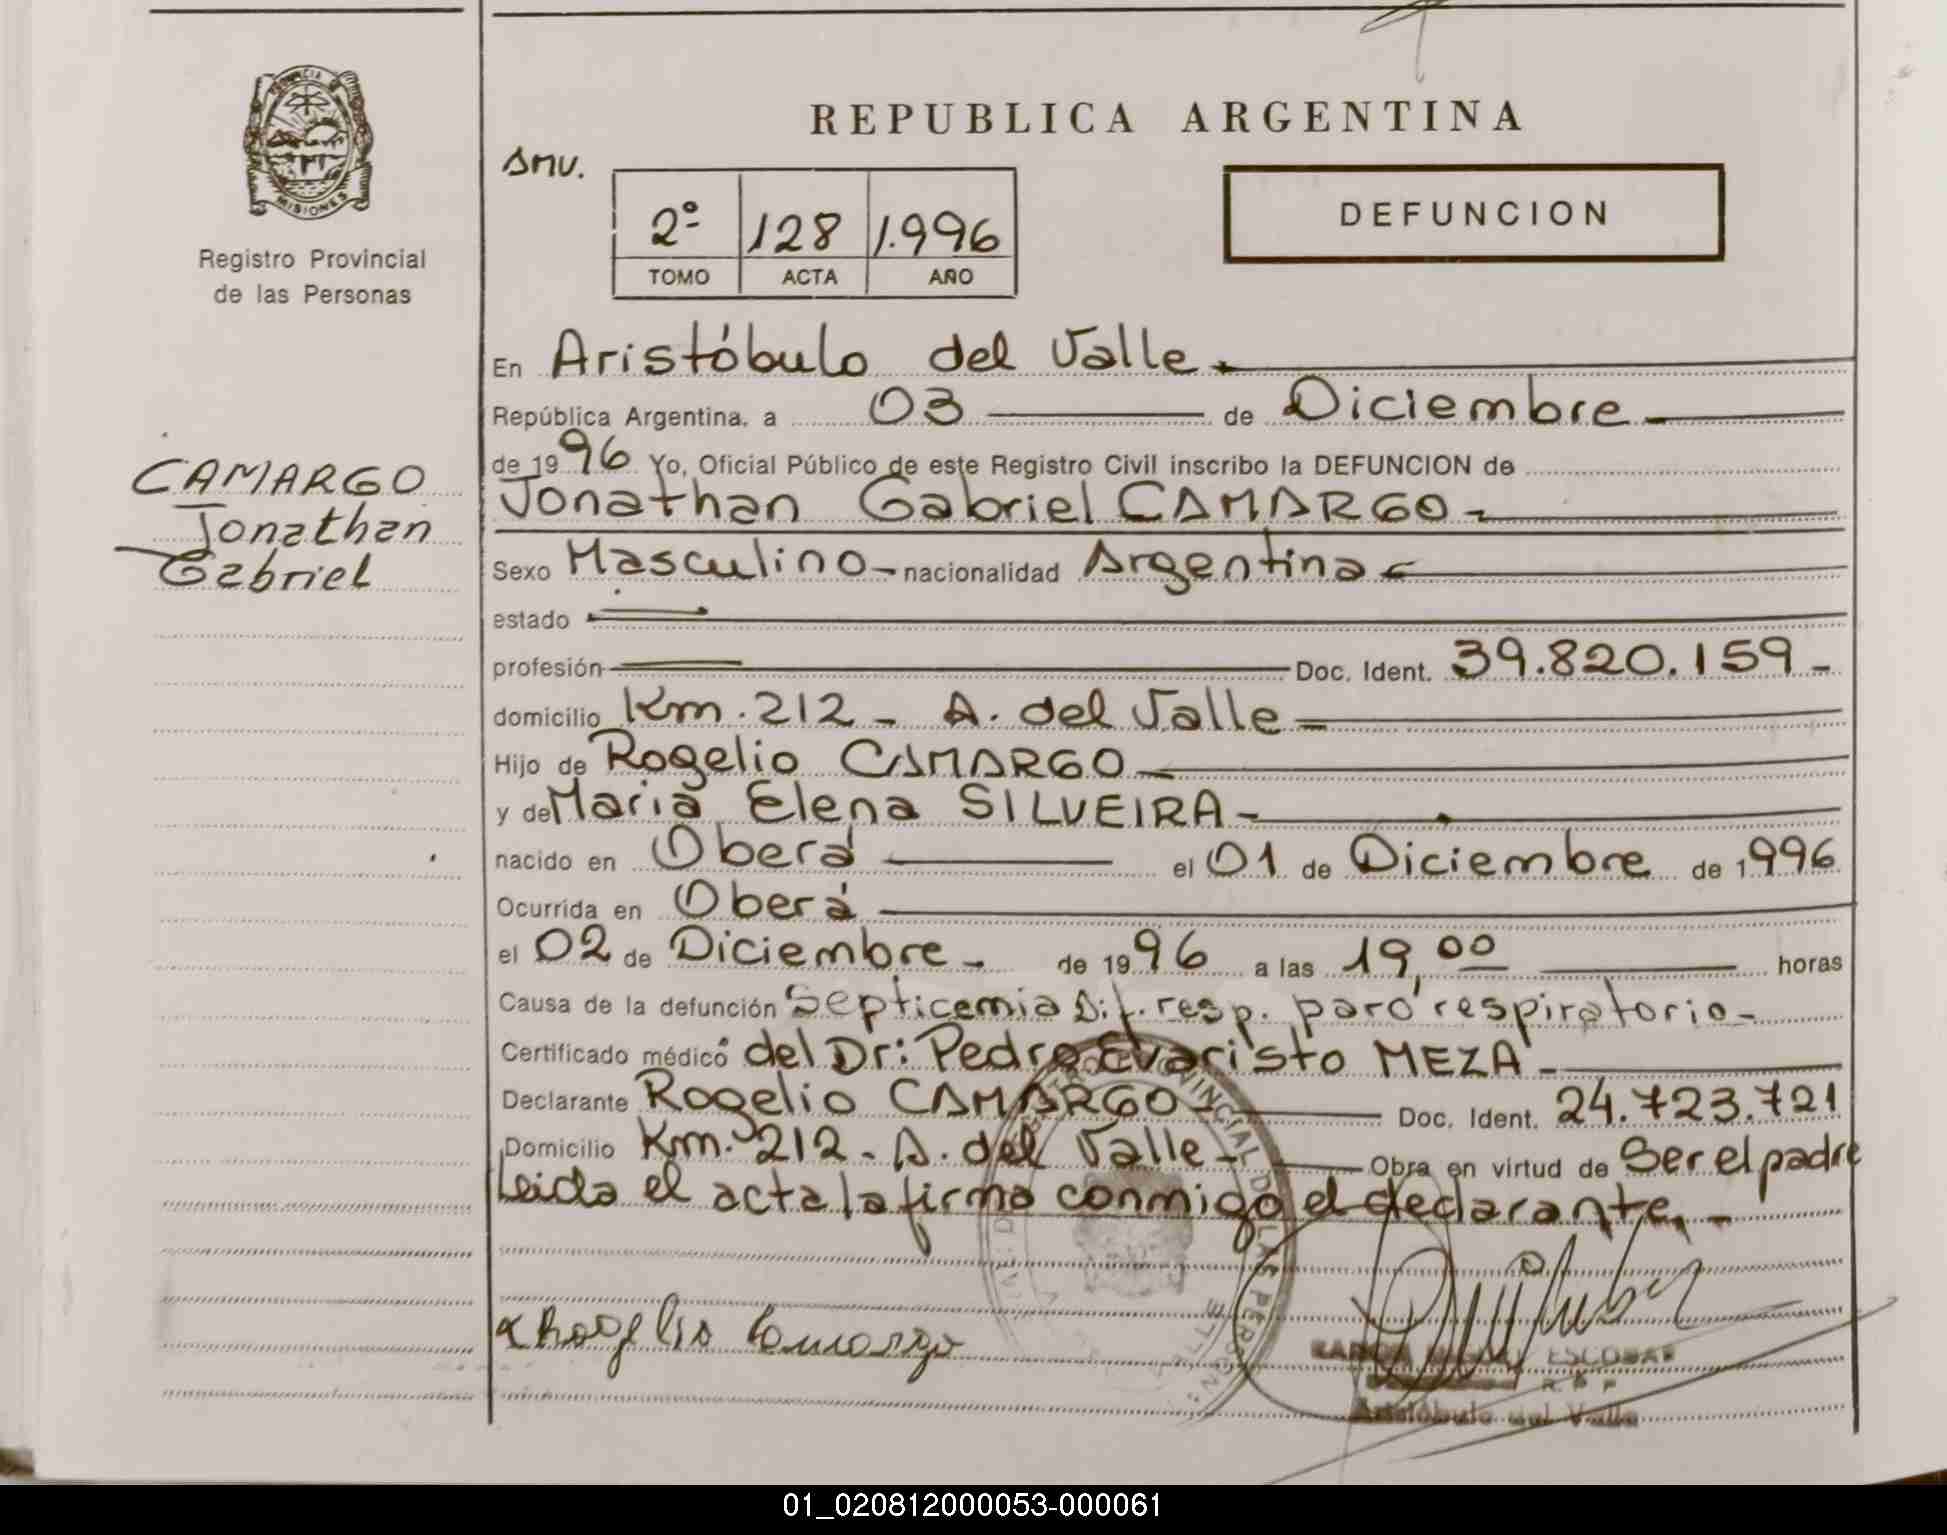 PROVINCIA DE
MISIONES
Registro Provincial
de las Personas
REPUBLICA ARGENTINA
SMV.
2º 128 1.996
TOMO ACTA AÑO
DEFUNCION
En Aristóbulo del Valle.
República Argentina, a 03 de Diciembre
de 1996 Yo, Oficial Público de este Registro Civil inscribo la DEFUNCION de
CAMARGO
Jonathan
Gabriel
Jonathan Gabriel CAMARGO-
Sexo Masculino- nacionalidad Argentina
estado
profesión Doc. Ident. 39.820.159-
domicilio Km.212- A. del Valle-
Hijo de Rogelio CAMARGO-
y de María Elena SILVEIRA-
nacido en Oberá el 01 de Diciembre de 1996
Ocurrida en Oberá
el 02 de Diciembre- de 1996 a las 19,00 horas
Causa de la defunción Septicemia Dif. resp. paro respiratorio-
Certificado médico del Dr: Pedro Evaristo MEZA-
Declarante Rogelio CAMARGO- Doc. Ident. 24.723.721
Domicilio Km. 212- A. del Valle- Obra en virtud de Ser el padre
Leida el acta la firma conmigo el declarante.-
Rogelio Camargo
ESCOBAR
R P P
Aristóbulo del Valle
01_020812000053-000061